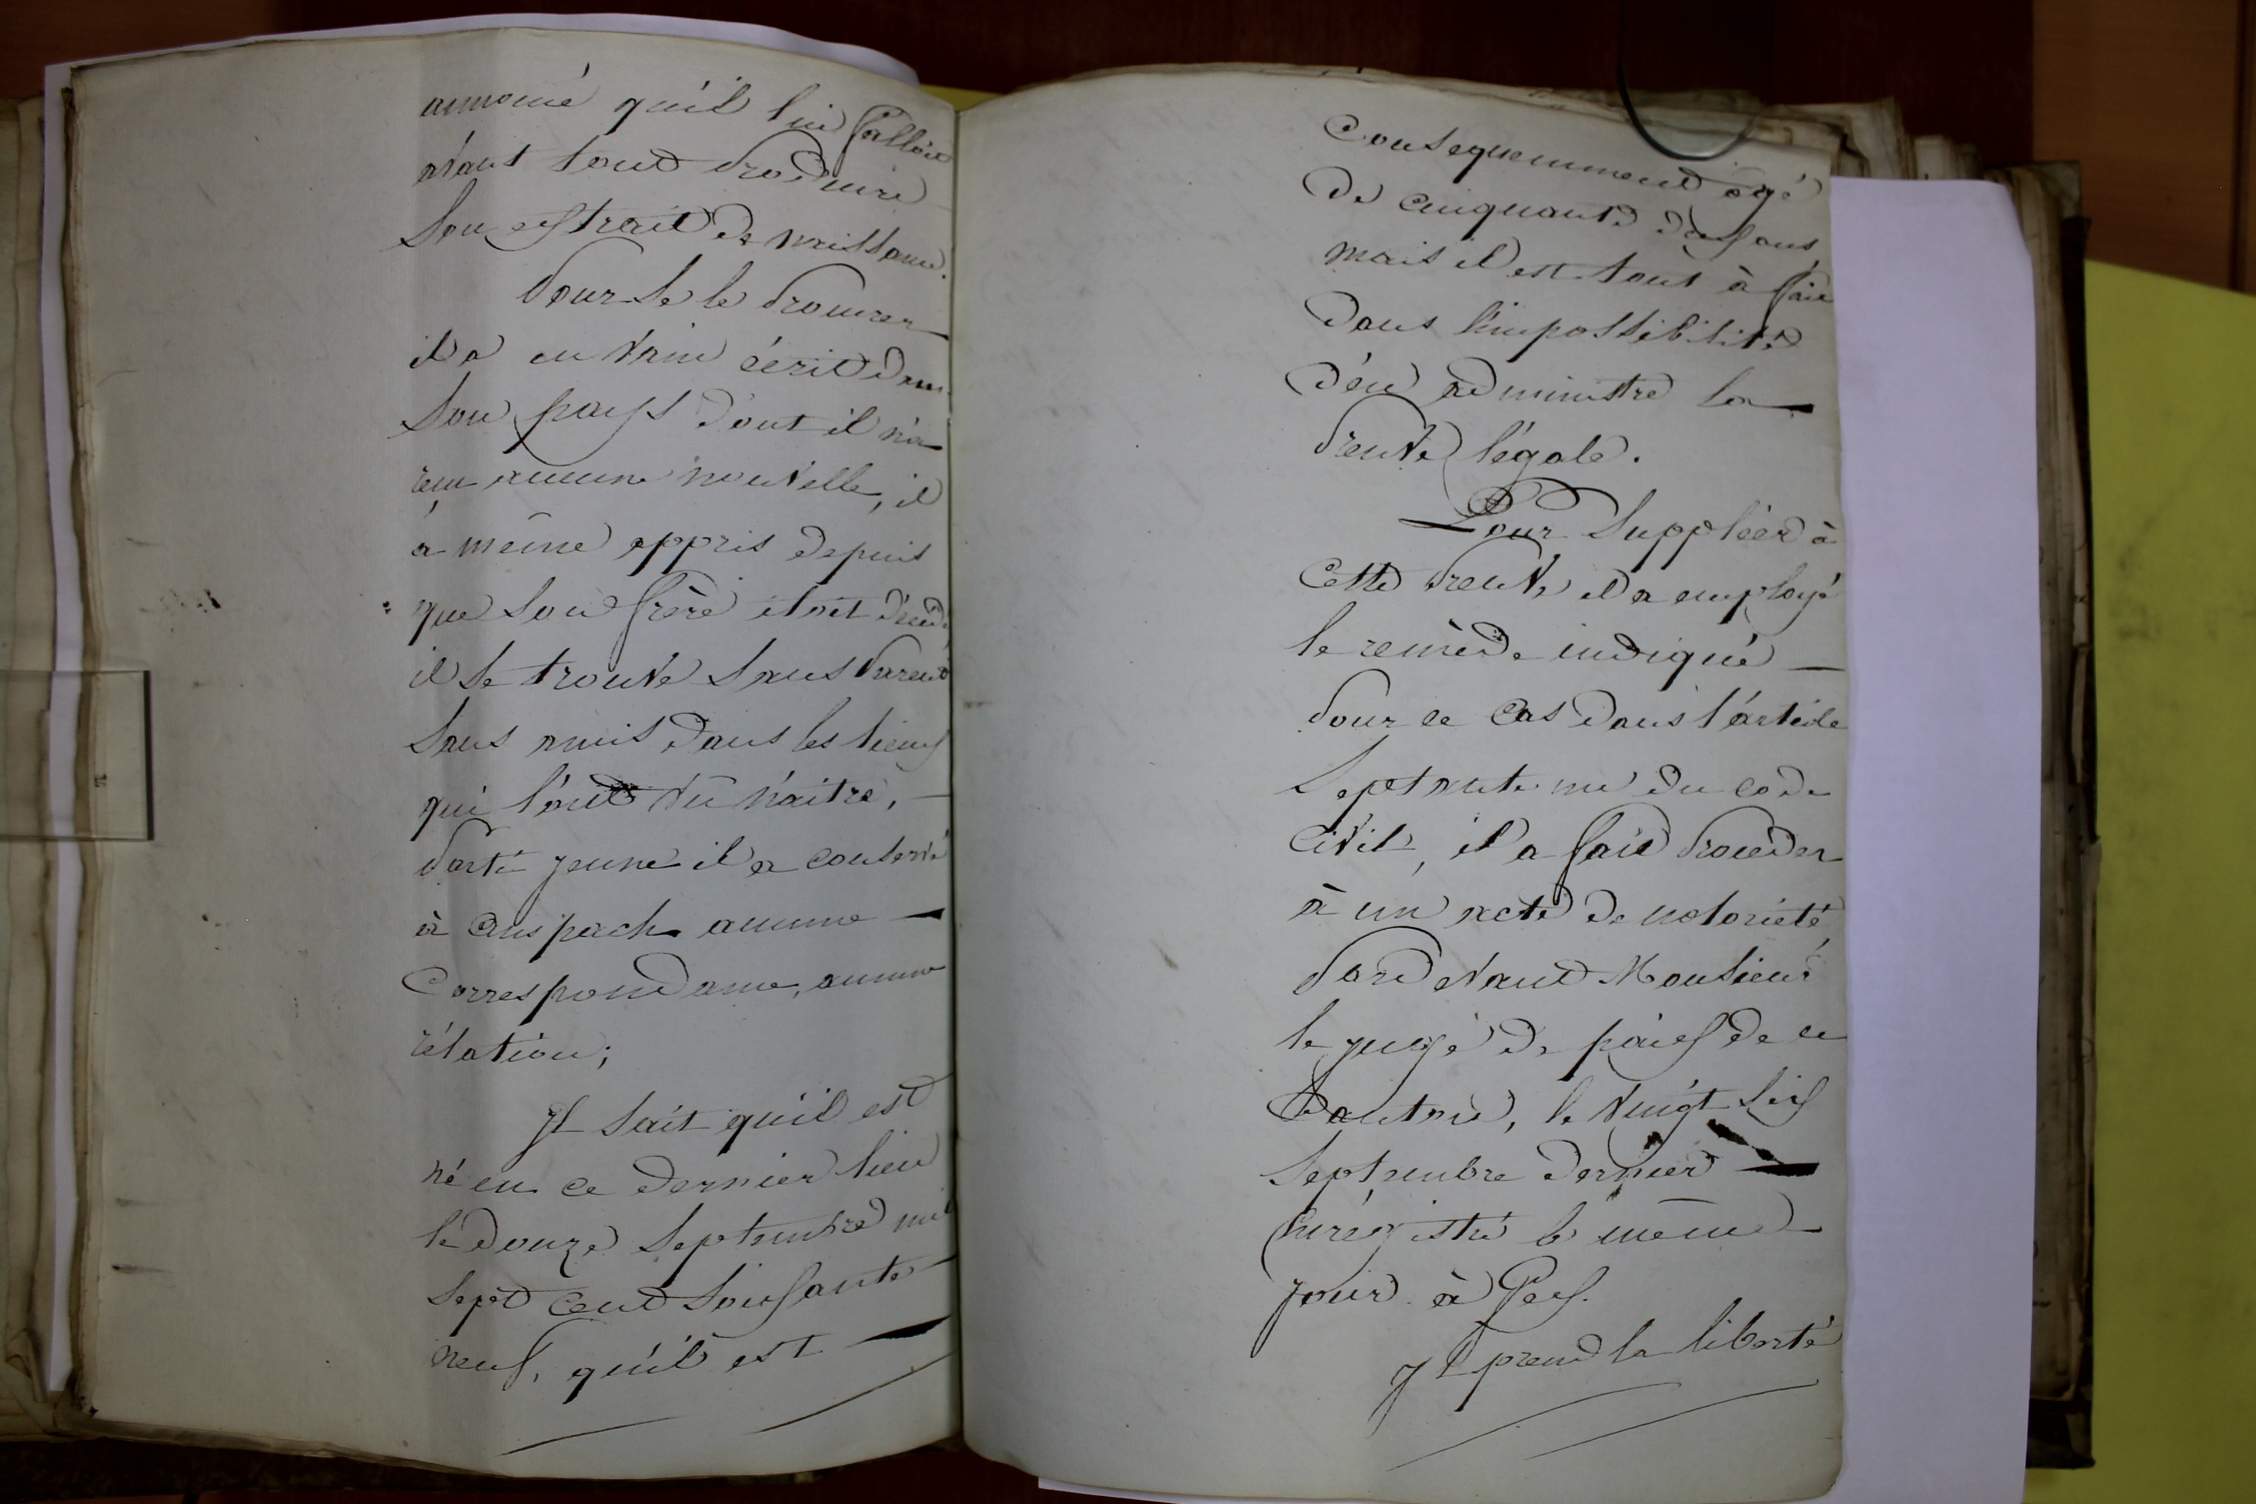 annoncé qu'il lui falloit
avant tout produire
son extrait de naissance.
Pour se le procurer
il a en vain écrit dans
son pays dont il n'a
reçu aucune nouvelle, il
a même appris depuis
que son frère étoit décédé
il se trouve sans parens
sans amis dans les lieux
qui l'ont vu naitre,
parti jeune il a conservé
à anspach aucune
correspondance, aucune
rélation;
Il sait qu'il est
né en ce dernier lieu
le douze Septembre mil
sept cent soixante
neuf, qu'il est
Consequemment agé
de cinquante dix ans
mais il est tout à fait
dans l'impossibilité
d'en administre la
preuve légale.
Pour suppléer à
cette preuve il a employé
le remède indiqué
pour ce cas dans l'article
septante un du code
civil, il a fait procéder
à un acte de notorieté
pardevant Monsieur
le juge de paix de ce
canton, le vingt six
septembre dernier
enrégistré le même
jour à Gex.
Il prend la liberté